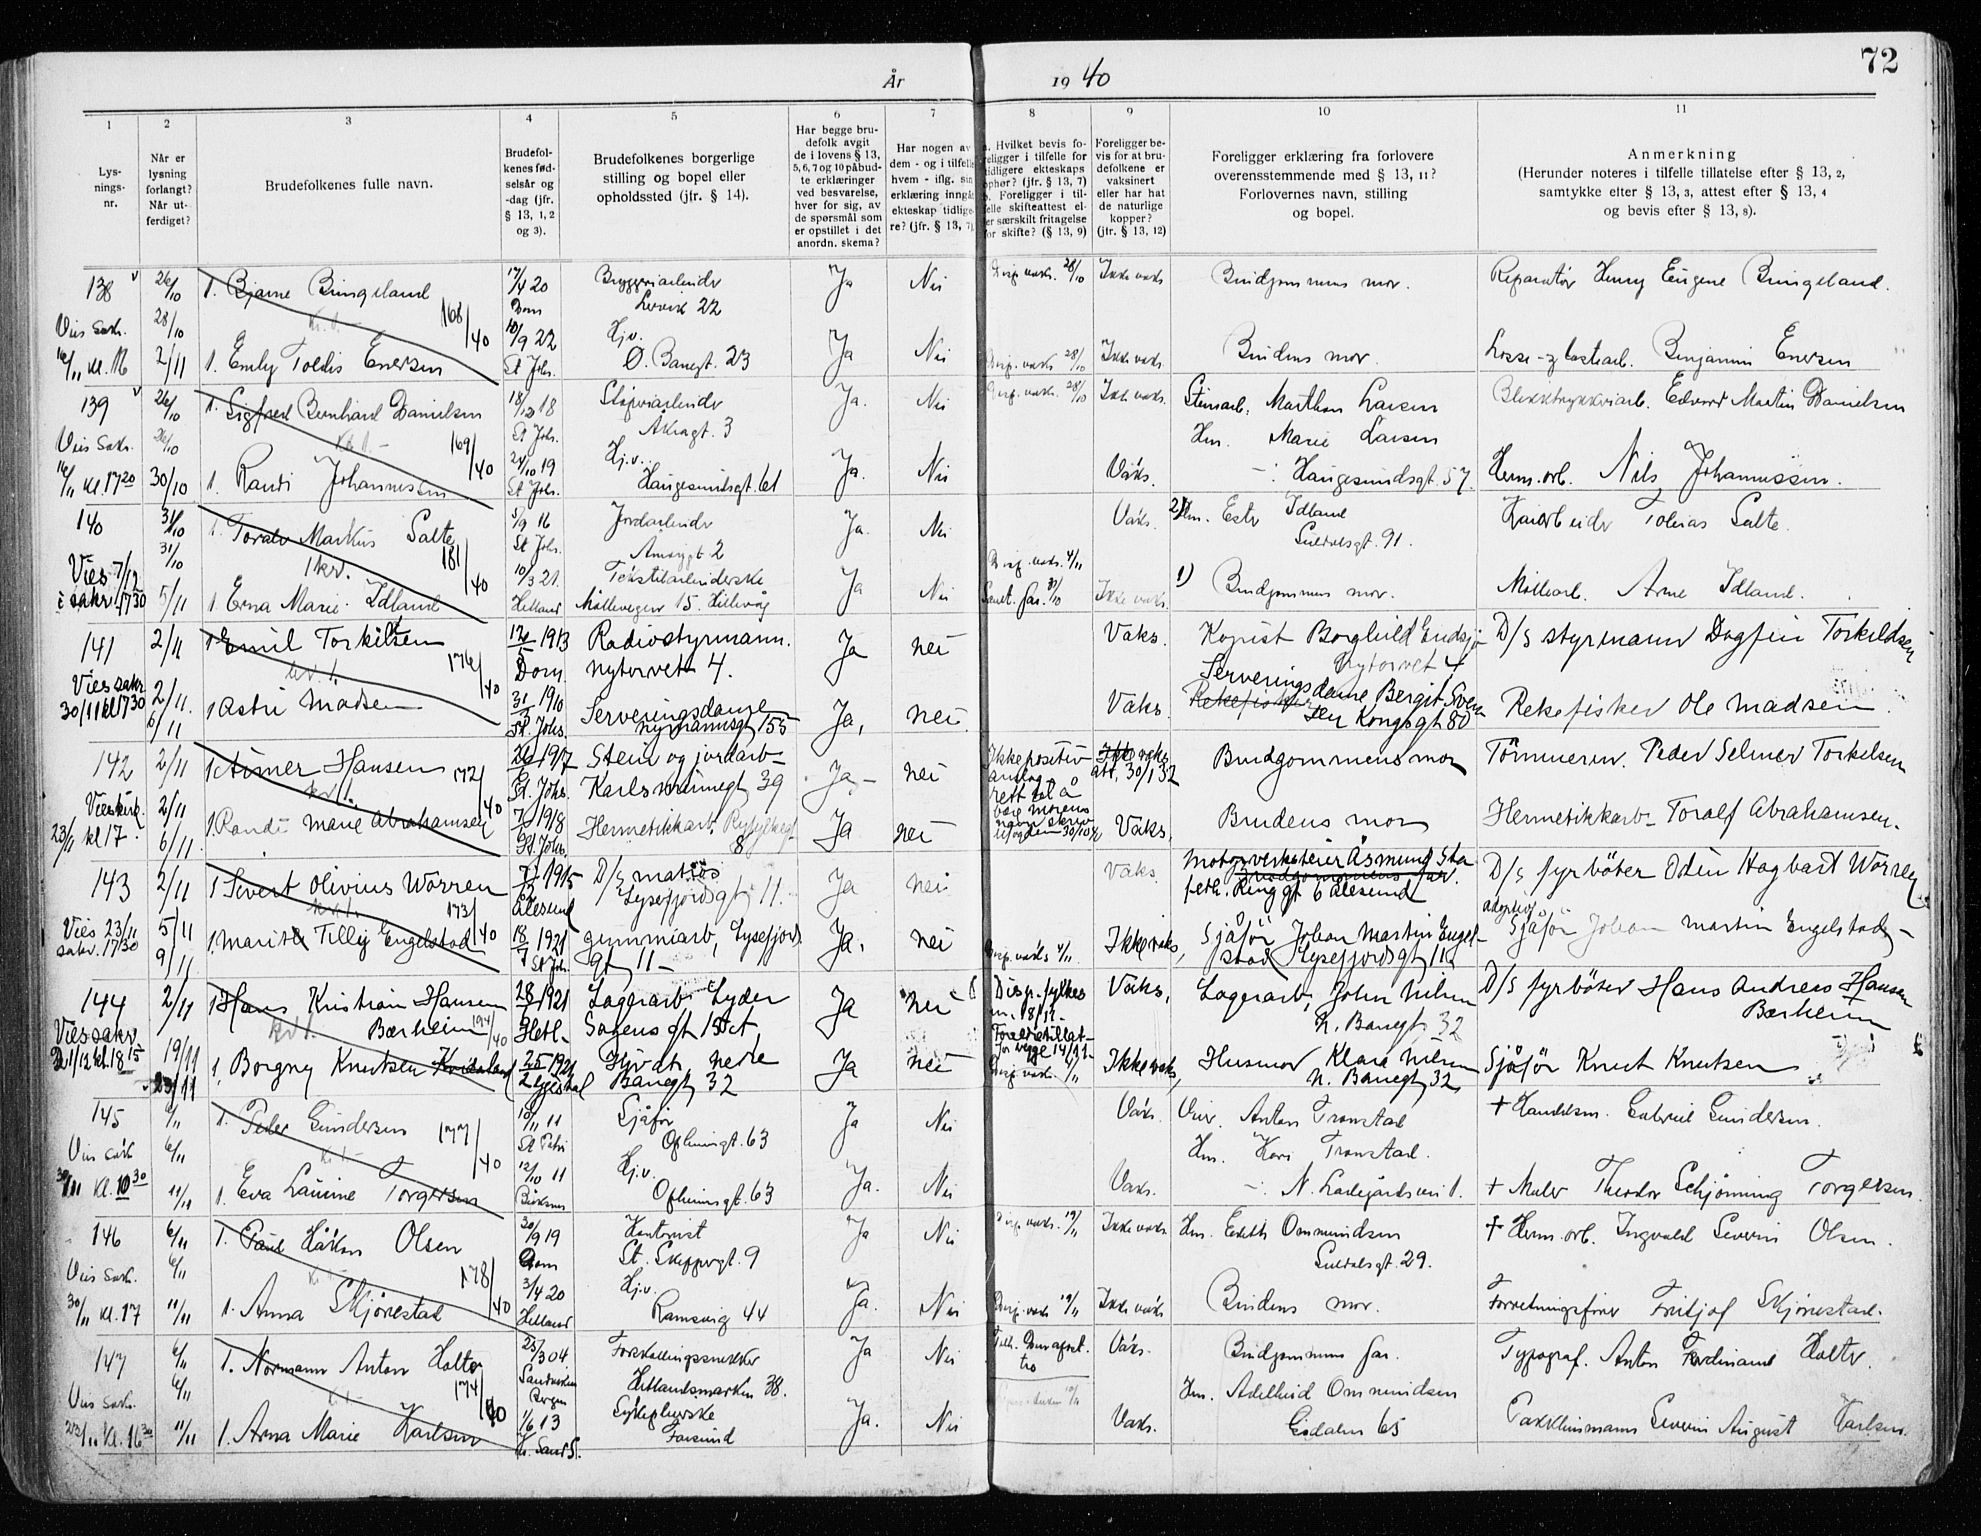 År 1940
72
1 2 3 4 5 6 7 8 9 10 11
Lys-
nings-
nr.
Når er
lysning
forlangt?
Når ut-
ferdiget?
Brudefolkenes fulle navn.
Brudefol-
kenes fød-
selsår og
-dag (jfr.
§ 13, 1, 2
og 3).
Brudefolkenes borgerlige
stilling og bopel eller
opholdssted (jfr. § 14).
Har begge bru-
defolk avgit
de i lovens § 13,
5, 6, 7 og 10 påbud-
te erklæringer
ved besvarelse,
hver for sig, av
de spørsmål som
er opstillet i det
anordn. skema?
Har nogen av
dem - og i tilfelle
hvem - iflg. sin
erklæring inngåt
ekteskap tidlige-
re? (jfr. § 13, 7)
Hvilket bevis fo-
religger i tilfelle for
tidligere ekteskaps
ophør? (jfr. § 13, 7)
Foreligger i til-
felle skifteattest el-
ler særskilt fritagelse
for skifte? (§ 13, 9)
Foreligger be-
vis for at bru-
defolkene er
vaksinert
eller har hat
de naturlige
kopper?
(jfr. § 13, 12)
Foreligger erklæring fra forlovere
overensstemmende med § 13, 11?
Forlovernes navn, stilling
og bopel.
Anmerkning
(Herunder noteres i tilfelle tillatelse efter § 13, 2,
samtykke efter § 13, 3, attest efter § 13, 4
og bevis efter § 13, 8).
138 26/10 1. Bjarne Bringeland 17/4 20 Bryggeriarbeider Ja Nei 28/10 Ikke vaks. Brudgommens mor. Reparatør Henry Eugene Bringeland.
28/10 168/40 Dom 22
Vies sakr. 10/9 22 Hj.v.
16/11 kl. 2/11 1. Emly Toldis Enersen St Johs. Ø. Banegt. 23 Ja Nei 28/10 Ikke vaks. Brudens mor. Losse- og lastearb. Benjamin Enersen
139 26/10 1. Sigfred Bernhard Danielsen 18/12 18 Ja. Nei 28/10 Ikke vaks. Steinarb. Marthon Larsen Edvard Martin Danielsen
26/10 169/40 St Johs. 3 Hm. Marie Larsen
Vies sakr. 24/10 19 Hj.v.
16/11 kl. 17 20 30/10 1. Randi Johannessen St Johs. Haugesundsgt. 61 Ja. Nei Vaks. Haugesundsgt. 57. Herm. arb. Nils Johannessen.
140 31/10 1. Toralv Markus Salte 5/9 16 Jordarbeider Ja. Nei Vaks. 2) Hm. Ester Idland Kaiarbeider Tobias Salte.
31/10 181/40 St Johs. 2 Suldalsgt. 91.
Vies 7/12 10/3 21. Tekstilarbeiderske 4/11
i sakr. 17 30 5/11 1. Erna Marie Idland Hetland Møllevegen 15. Hillevåg Ja Nei Ikke vaks. 1) Brudgommens mor. Møllearb. Arne Idland.
141 2/11 1 Emil Torkildsen 1913 Radiostyrmann. Ja nei Vaks. Kopist Borghild Endsjø D/s styrmann Dagfin Torkildsen
176/40 Dom. nytorvet 4. nytorvet 4
Vies sakr. 2/11. 31/3 1910 Serveringsdame Serveringsdame Bergit Svend
30/11 kl 17 30 6/11 1 Astri Madsen St. Johs. nymannsgt 155 Ja, nei Vaks. Rekefisker sen Kongsgt 80 Rekefisker Ole Madsen
142 2/11 1 Asmer Hansen 1917 Stein og jordarb- Ja nei Ikke positiv Ikke vaks. att. 30/1 32 Brudgommens mor Tömmerm. Peder Selmer Torkelsen
2/11 172/40 St. Johs. Karlsminnegt 39
Vies kirk. 1918
23/11 kl 17. 6/11. 1. Randi Marie Abrahamsen St. Johs. Hermetikkarb. Ryfylkegt. 8 Ja nei Vaks. Brudens mor Hermetikkarb- Toralf Abrahamsen.
143 2/11 1 Sivert Olivius Worren 1915 D/s matros Ja nei vaks. Motorverksteier Åsmund Sta D/s fyrböter Odin Hagbart Worren
173/40 Ålesund Lysefjordsgt. 11. Ringgt 6 Ålesund
Vies 23/11 5/11 18/7 1921 gummiarb, Lysefjords adoptivf.
sakr. 17 30 9/11 1. Marit Tilly Engelstad St Johs. gt 11- Ja, nei 4/11. Ikke vaks. Sjåför Johan Martin Engelstad Lysefjordsgt 11 Sjåför Johan Martin Engelstad-
144 2/11 1 Hans Kristian Hansen 28/9 1921 Lagerarb. Lyder Ja nei Disp. fylkesm. 18/11- Vaks, Lagerarb, John Nilsen D/s fyrböter Hans Andreas Hansen
Bærheim 194/40 Hetl. Sagens gt 13 N. Banegt 32 Bærheim
Vies sakr. Foreldretillat-
21/12 kl. 18 15 19/11 1. Borgny Knutsen 1921 Ja nei 4/11 Ikke vaks, Husmor Klara Nilsen Sjåför Knut Knutsen
23/11 Banegt 32 N. Banegt 32
145 6/11 1. Peder Gundersen 10/11 11 Sjåför Ja Nei Vaks. Anton Tronstad + Handelsm. Gabriel Gundersen.
6/11 177/40 St Petri Opheimsgt. 63 Hm. Kari Tronstad.
Vies sakr. 12/10 11 Hj.v.
30/11 kl. 10 30 11/11 1. Eva Lauine Torgersen Opheimsgt. 63 Ja. Nei Vaks. N. Ladegårdsvei 1. + Maler Theodor Schjønning Torgersen.
146 6/11 1. Paul Håkon Olsen 30/9 19 Kontorist Ja Nei 12/11 Ikke vaks. Hm. Edith Ommundsen + Herm. arb. Ingvald Severin Olsen.
6/11 178/40 Dom St. Skippergt. 9 Suldalsgt. 29.
Vies sakr. 3/4 20 Hj.v.
30/11 kl. 17 11/11 1. Anna Skjørestad Hetland Ramsvig 44 Ja. Nei 12/11 Ikke vaks. Brudens mor. Forretningsfører Fritjof Skjørestad.
147 6/11 1. Normann Anton Holter 23/3 04. Ja Nei Vaks. Brudgommens far. Typograf. Anton Ferdinand Holter.
6/11 174/40 Sandviken Bergen Hetlandsmarken 38. Hm. Adelheid Ommundsen
Vies sakr. 1/6 13 Sykepleierske
23/11 kl. 16 30 11/11 1. Arna Marie Karlsen Kr. Sand S. Farsund Ja. Nei Vaks. Eidalen 65 Pakkhusmann Severin August Karlsen.